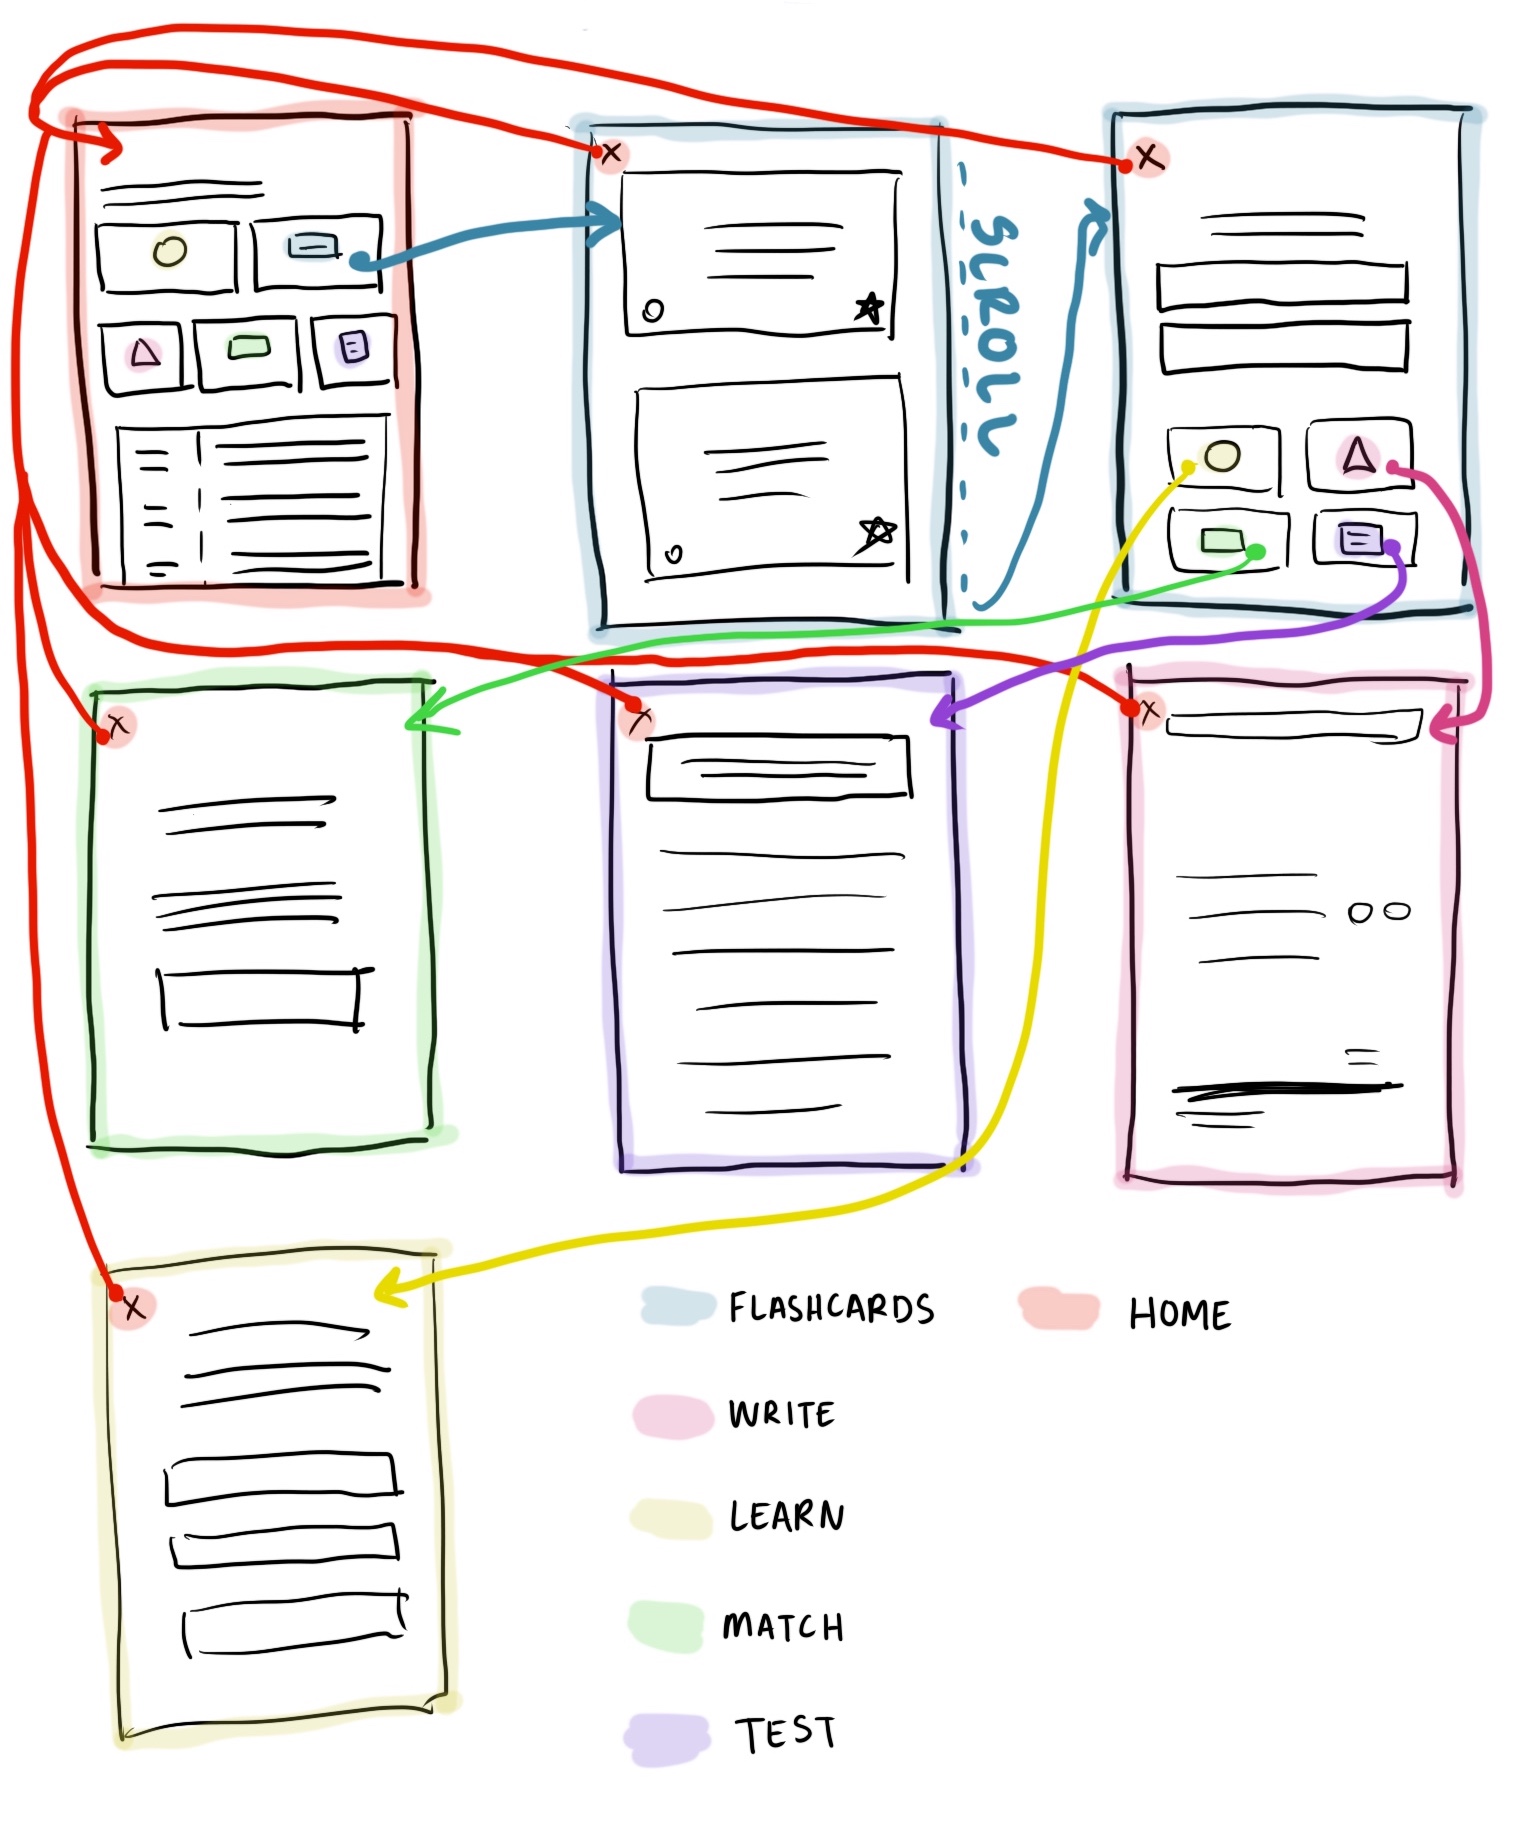 SCROLL
FLASHCARDS
HOME
WRITE
LEARN
MATCH
TEST